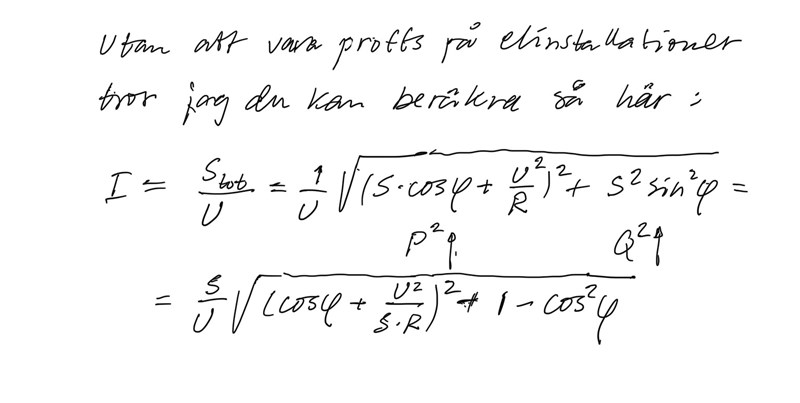 Utan att vara proffs på elinstallationer
tror jag du kan beräkna så här :
I = S_tot/U = 1/U √((S·cosφ + U²/R)² + S² sin²φ) =
P²↑ Q²↑
= S/U √((cosφ + U²/(S·R))² + 1 - cos²φ)